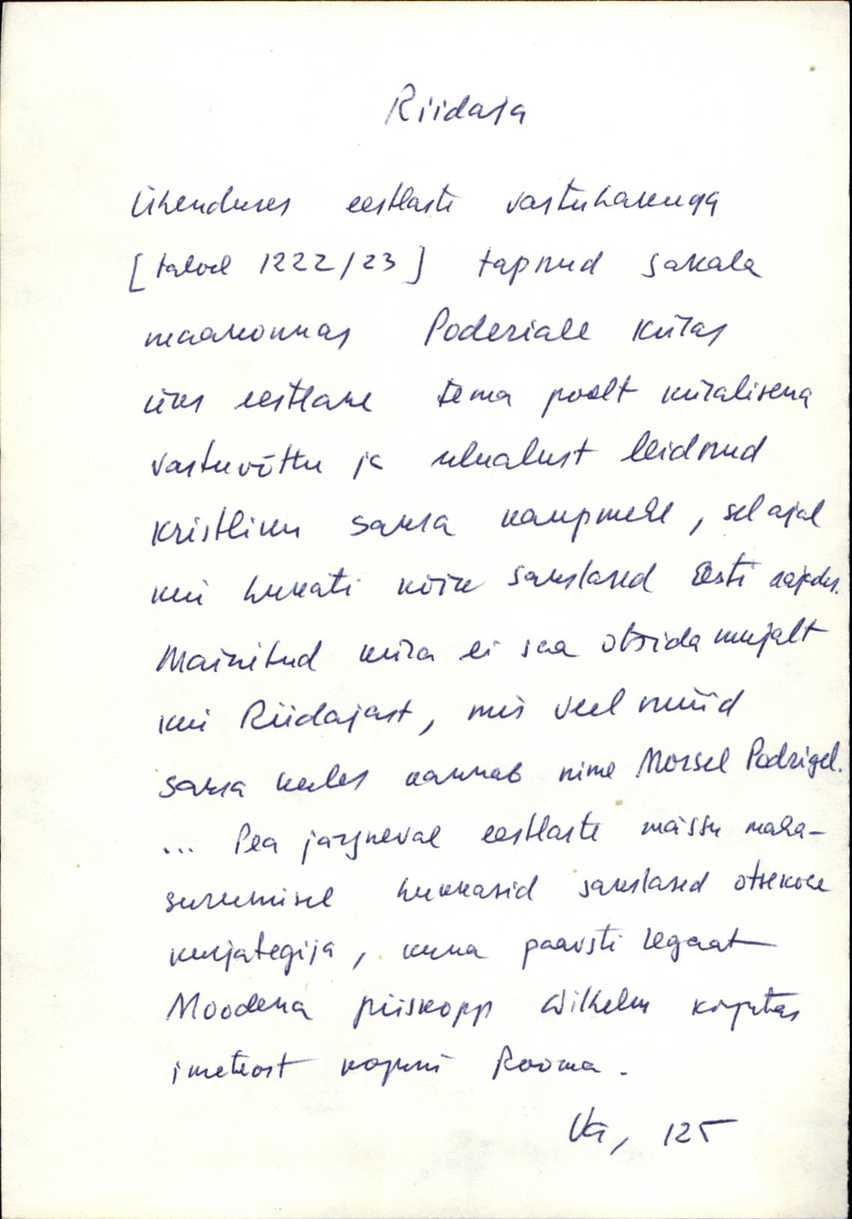 Riidaja
Ühenduses eestlaste vastuhakuga
[talvel 1222/23] tapnud Sakala
maakonnas Poderiale külas
üks eestlane tema poolt külalisena
vastuvõttu ja ulualust leidnud
kristliku saksa kaupmehe, sel ajal
kui hukati kõik sakslased Eesti
Mainitud küla ei saa otsida mujalt
kui Riidajast, mis veel nüüd
saksa keeles kannab nime Morsel Podrigel.
... Pea järgneval eestlaste mässu maha-
surumisel hukkasid sakslased otsekohe
kurjategija, kuna paavsti legaat
Moodena piiskopp Wilhelm kirjutas
imeteost Rooma.
Va, 125